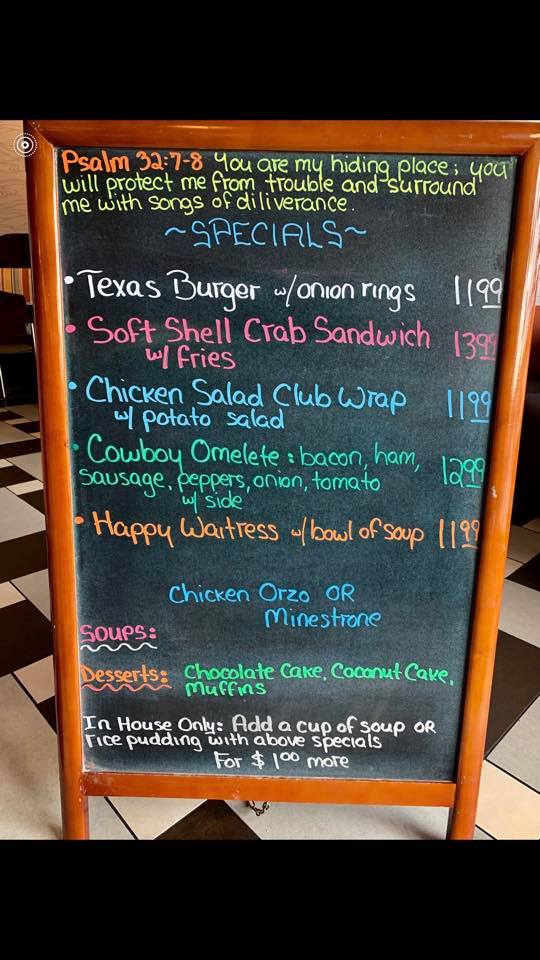 Psalm 32:7-8 You are my hiding place; you
will protect me from trouble and surround
me with songs of diliverance.
~SPECIALS~
• Texas Burger w/onion rings 1199
• Soft Shell Crab Sandwich 1399
w/ fries
• Chicken Salad Club Wrap 1199
w/ potato salad
• Cowboy Omelete: bacon, ham, 1299
sausage, peppers, onion, tomato
w/ side
• Happy Waitress w/bowl of soup 1199
Chicken Orzo OR
Minestrone
Soups:
Desserts: Chocolate Cake, Coconut Cake,
Muffins
In House Only: Add a cup of soup OR
rice pudding with above specials
For $100 more